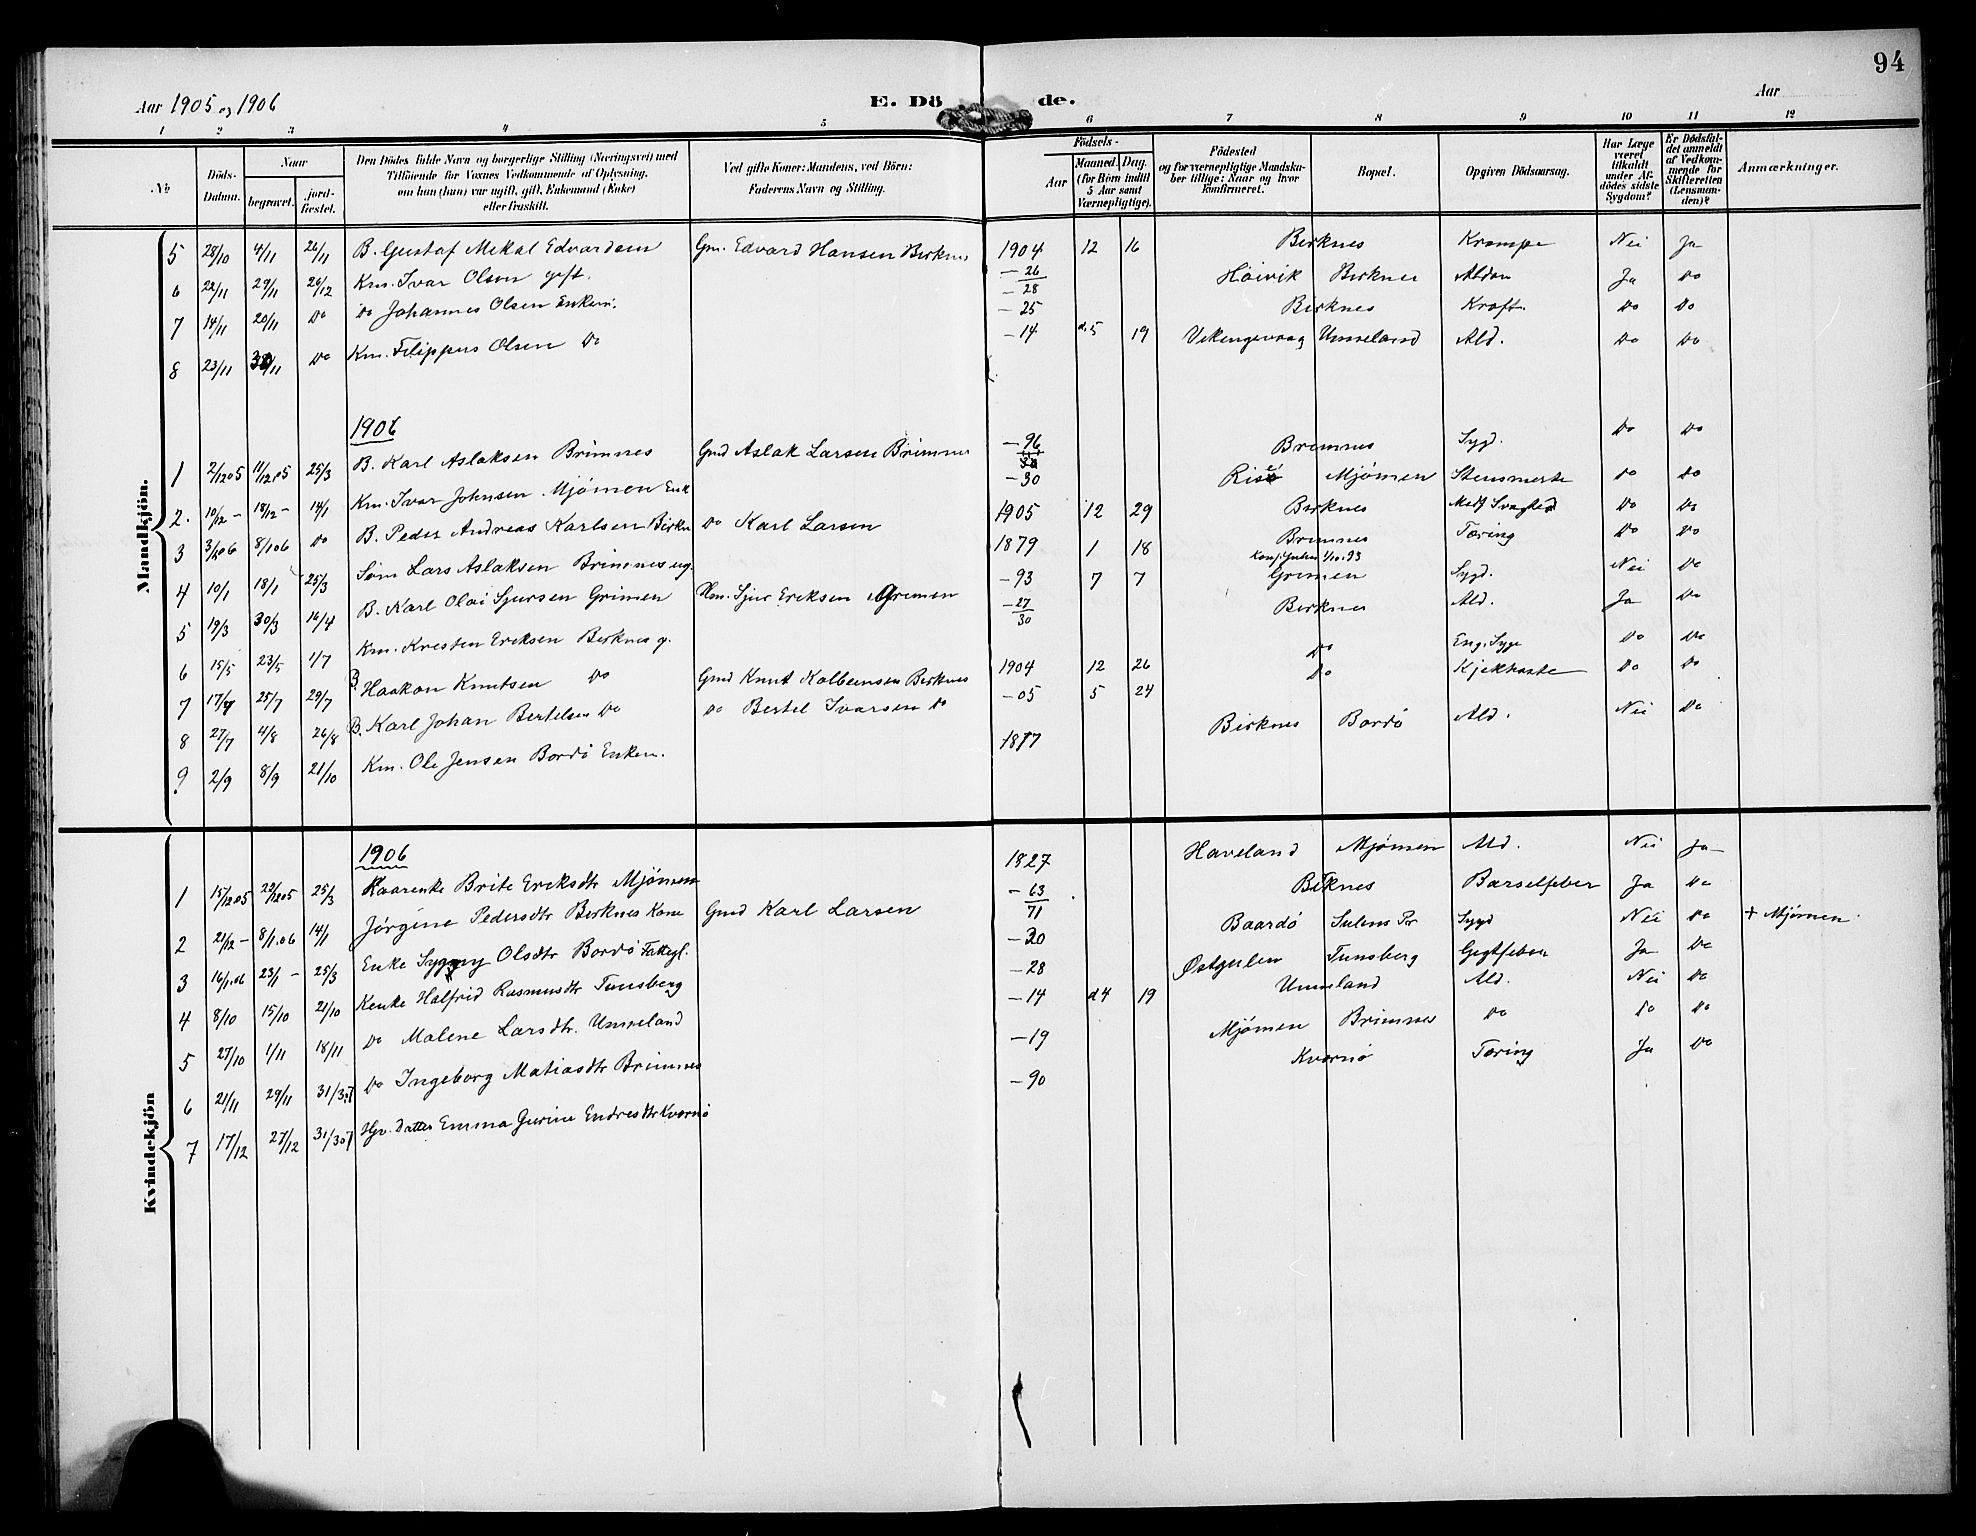 94
Aar 1905 og 1906
E. Dö
de.
Aar
1 2 3 4 5 6 7 8 9 10 11 12
No
Døds-
Datum.
Naar
begravet.
jord-
fæstet.
Den Dödes fulde Navn og borgerlige Stilling (Næringsvei) med
Tilföiende for Voxnes Vedkommende af Oplysning,
om han (hun) var ugift, gift, Enkemand (Enke)
eller fraskilt.
Ved gifte Koner: Mandens, ved Börn:
Faderens Navn og Stilling.
Födsels-
Aar
Maaned. Dag.
(for Börn indtil
5 Aar samt
Værnepligtige).
Födested
og for værnepligtige Mandska-
ber tillige: Naar og hvor
konfirmeret.
Bopæl.
Opgiven Dödsaarsag.
Har Læge
været
tilkaldt
under Af-
dödes sidste
Sygdom?
Er Dödsfal-
det anmeldt
af Vedkom-
mende for
Skifteretten
(Lensman-
den)?
Anmærkninger.
Mandkjön.
5 28/10 4/11 26/11 B. Gustaf Mekal Edvardsen Gm. Edvard Hansen Birknes 1904 12 16 Birknes Krampe Nei Ja
6 22/11 29/11 26/12 Km. Ivar Olsen gift. – 26/28 Höivik Birknes Aldom Ja Do
7 14/11 20/11 Do Do Johannes Olsen Enkem. – 25 Birknes Kræft Do Do
8 23/11 30/11 Do Km. Filippus Olsen Do – 14 d. 5 19 Vikingevaag Unneland Ald. Do Do
1906
1 2/12 05 11/12.05 25/3 B. Karl Aslaksen Brimnes Gmd Aslak Larsen Brimnes – 96 Bremnes Syg. Do Do
2. 10/12 – 18/12 – 14/1 Km. Ivar Johnsen Mjømen Enk – 30 Mjømen Stensmerte Do Do
3 3/1 06 8/1 06 Do B. Peder Andreas Karlsen Birkn Do Karl Larsen 1905 12 29 Birknes Medf Svaghed Do Do
4 10/1 18/1 25/3 Søm Lars Aslaksen Brimnes ug. 1879 1 18 Brimnes Tæring Do Do
1/10.93
5 19/3 30/3 16/4 B. Karl Olai Sjursen Grimen Hm. Sjur Eriksen Grimen – 93 7 7 Grimen Sygd. Nei Do
6 15/5 23/5 1/7 Km. Kresten Ericksen Birknes g. – 27/30 Birknes Ald. Ja Do
7 17/7 25/7 29/7 B. Haakon Knutsen Do Gmd Knut Kolbeinsen Birknes 1904 12 26 Do Eng. Syge Do Do
8 27/7 4/8 26/8 B. Karl Johan Bertelsen Do Do Bertel Ivarsen Do – 05 5 24 Do Kjekhoste Do Do
9 2/9 8/9 21/10 Km. Ole Jensen Bordö Enkem. 1817 Birknes Bordö Ald. Nei Do
Kvindekjön
1906
1 15/12 05 22/12 05 25/3 Kaarenke Brite Ericksdtr Mjömen 1827 Haveland Mjømen Ald. Nei Ja
2 21/12 – 8/1.06 14/1 Jørgine Pedersdtr Birknes Kone Gmd Karl Larsen – 63/71 Birknes Barselfeber Ja Do
3 16/1.06 23/1 – 25/3 Enke Olsdtr Bordö Fattigl. – 30 Baardö Sulens Pr Sygd Nei Do + Mjømen
4 8/10 15/10 21/10 Kenke Halfrid Rasmusdtr Tunsberg – 28 Østgulen Tunsberg Gigtfeber Ja Do
5 27/10 1/11 18/11 Do Malene Larsdtr. Unneland – 14 d 4 19 Unneland Ald. Nei Do
6 21/11 29/11 31/3 07 Do Ingeborg Matiasdtr Brimnes – 19 Mjömen Brimnes Do Do Do
7 17/12 27/12 31/3 07 Hgv. Datter Emma Gurine Endresdtr Kværnö – 90 Kvernö Tæring Ja Do